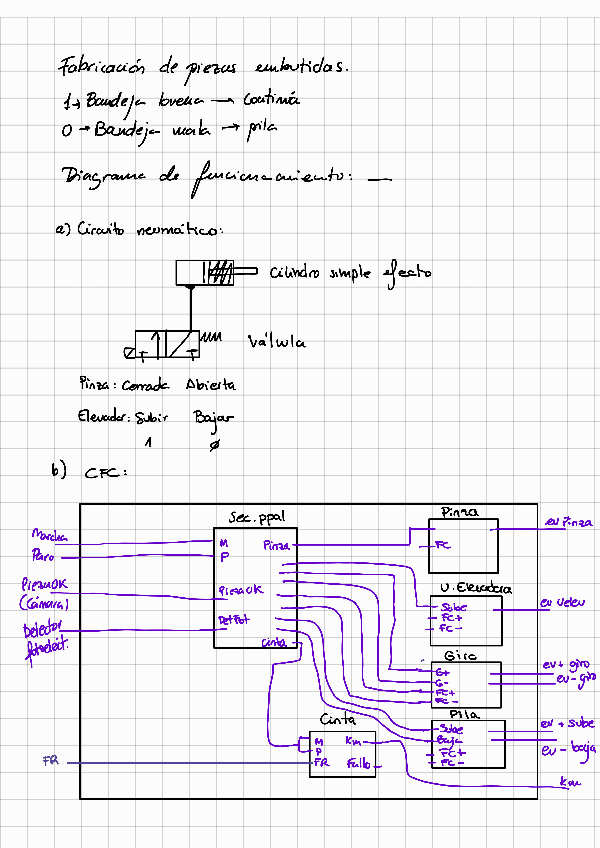 Fabricación de piezas embutidas.
1 → Bandeja buena → continúa
0 → Bandeja mala → pila
Diagrama de funcionamiento: —
a) Circuito neumático:
Cilindro simple efecto
Válvula
Pinza: Cerrada Abierta
Elevador: Subir Bajar
1 ø
b) CFC:
Sec. ppal
Pinza
Marcha
M
Pinza
FC
ev Pinza
Paro
P
PiezaOK
(Cámara)
PiezaOK
U. Elevadora
Sube
FC+
FC-
ev Uelev
Detector
fotoeléct.
DetFot
Cinta
Giro
G+
G-
FC+
FC-
ev + giro
ev - giro
Cinta
M
P
FR
Km
Fallo
FR
Pila
Sube
Baja
FC+
FC-
ev + sube
ev - baja
Km